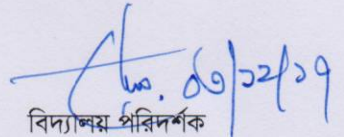 ০৩/১২/১৭
বিদ্যালয় পরিদর্শক